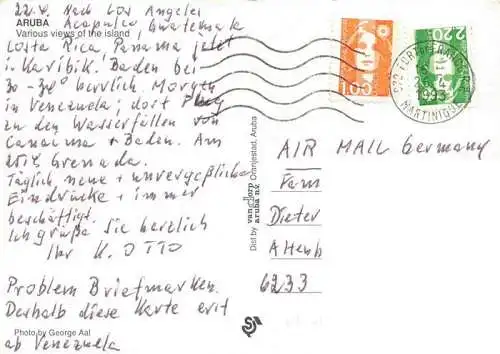 22.4. Nach Los Angeles
ARUBA
Acapulco, Guatemala
Various views of the island
Costa Rica, Panama jetzt
in Karibik. Baden bei
30-32° herrlich. Morgen
in Venezuela; dort Flug
zu den Wasserfällen von
Canaima + Baden. Am
25.4 Grenada.
Täglich neue + unvergeßlichen
Eindrücke + immer
beschäftigt.
Ich grüße Sie herzlich
Ihr K. OTTO
Problem Briefmarken.
Deshalb diese Karte erst
ab Venezuela
Photo by George Aal
Dist by van dorp aruba n.v. Oranjestad, Aruba
1,00
2,20
FORT DE FRANCE
1993
MARTINIQUE
AIR MAIL Germany
Fam
Dieter
Altenb
6233